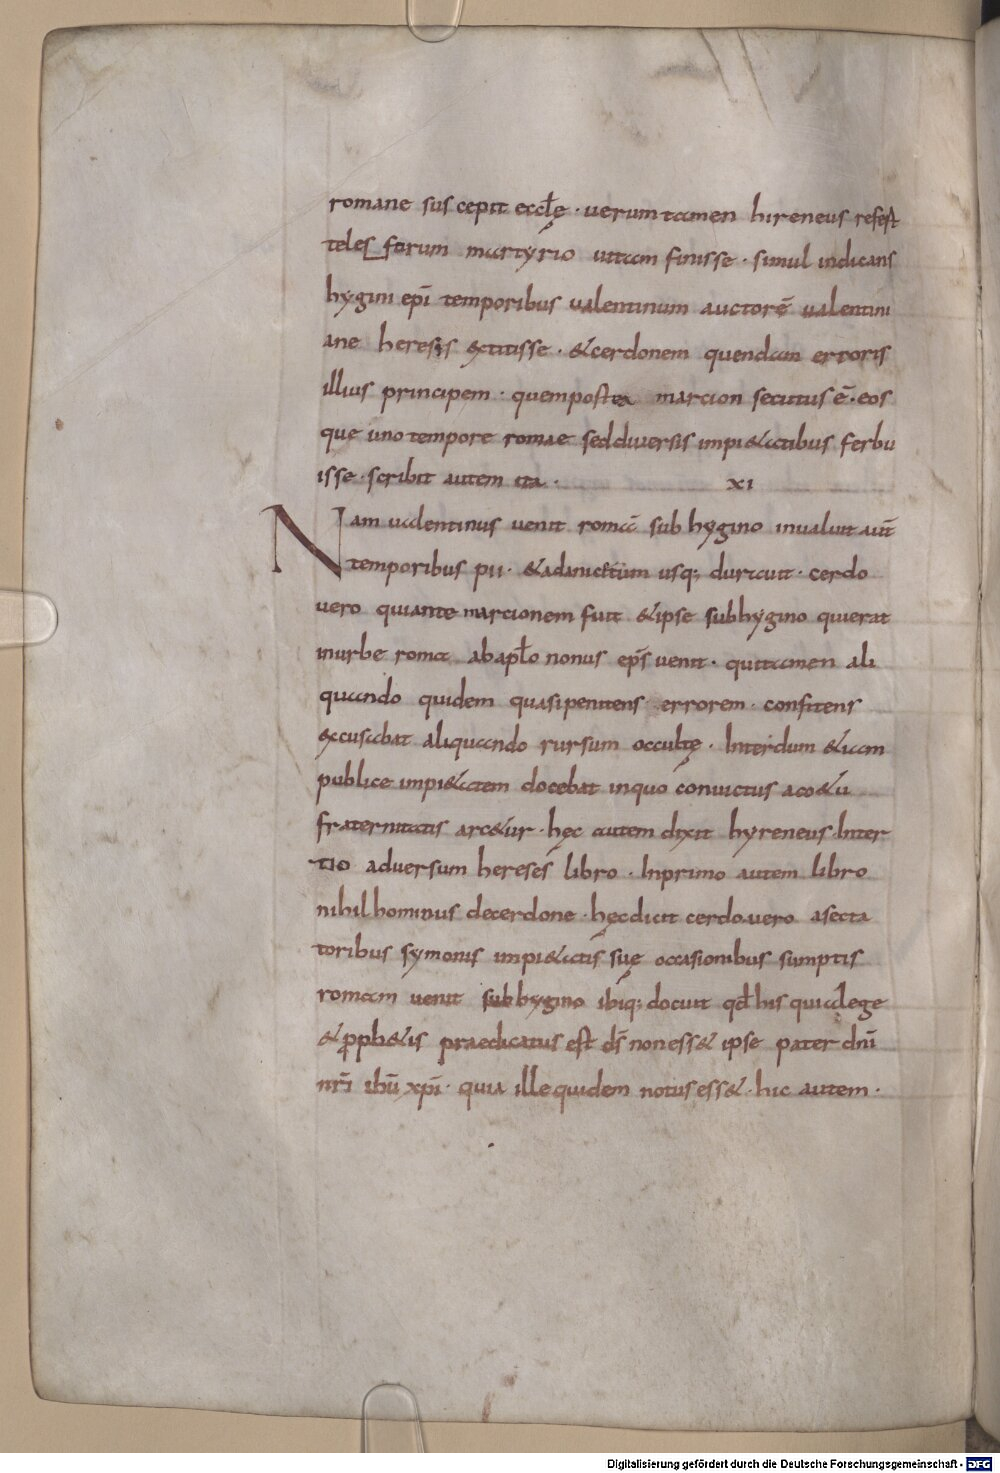 romane suscepit eccłę · uerum tamen hireneus refest
telesforum martyrio uitam finisse · simul indicans
hygini epī temporibus ualentinum auctorē ualentini
ane heresis &ctitisse · & cerdonem quendam erroris
illius principem · quem postea marcion secutus ē · eos
que uno tempore romae sed diuersis impi&atibus ferbu
isse · scribit autem ita · XI
Nam ualentinus uenit romā sub hygino inualuit aut̄
temporibus pii · & ad anicetum usq; durauit · cerdo
uero qui ante marcionem fuit & ipse sub hygino qui erat
in urbe roma ab apło nonus ep̄s uenit · qui tamen ali
quando quidem quasi penitens errorem confitens
excusabat aliquando rursum occultę · Interdum &iam
publice impi&atem docebat in quo conuictus a co&u
fraternitatis arc&ur · hęc autem dixit hyreneus · In ter
tio aduersum hereses libro · In primo autem libro
nihilhominus de cerdone · hęc dicit cerdo uero a secta
toribus symonis impi&atis suę occasionibus sumptis
romam uenit sub hygino ibiq; docuit qđ his qui a lege
& proph&is praedicatus est d̄s non ess& ipse pater dn̄i
nr̄i ihū xp̄i · quia ille quidem notus ess& · hic autem ·
Digitalisierung gefördert durch die Deutsche Forschungsgemeinschaft - DFG